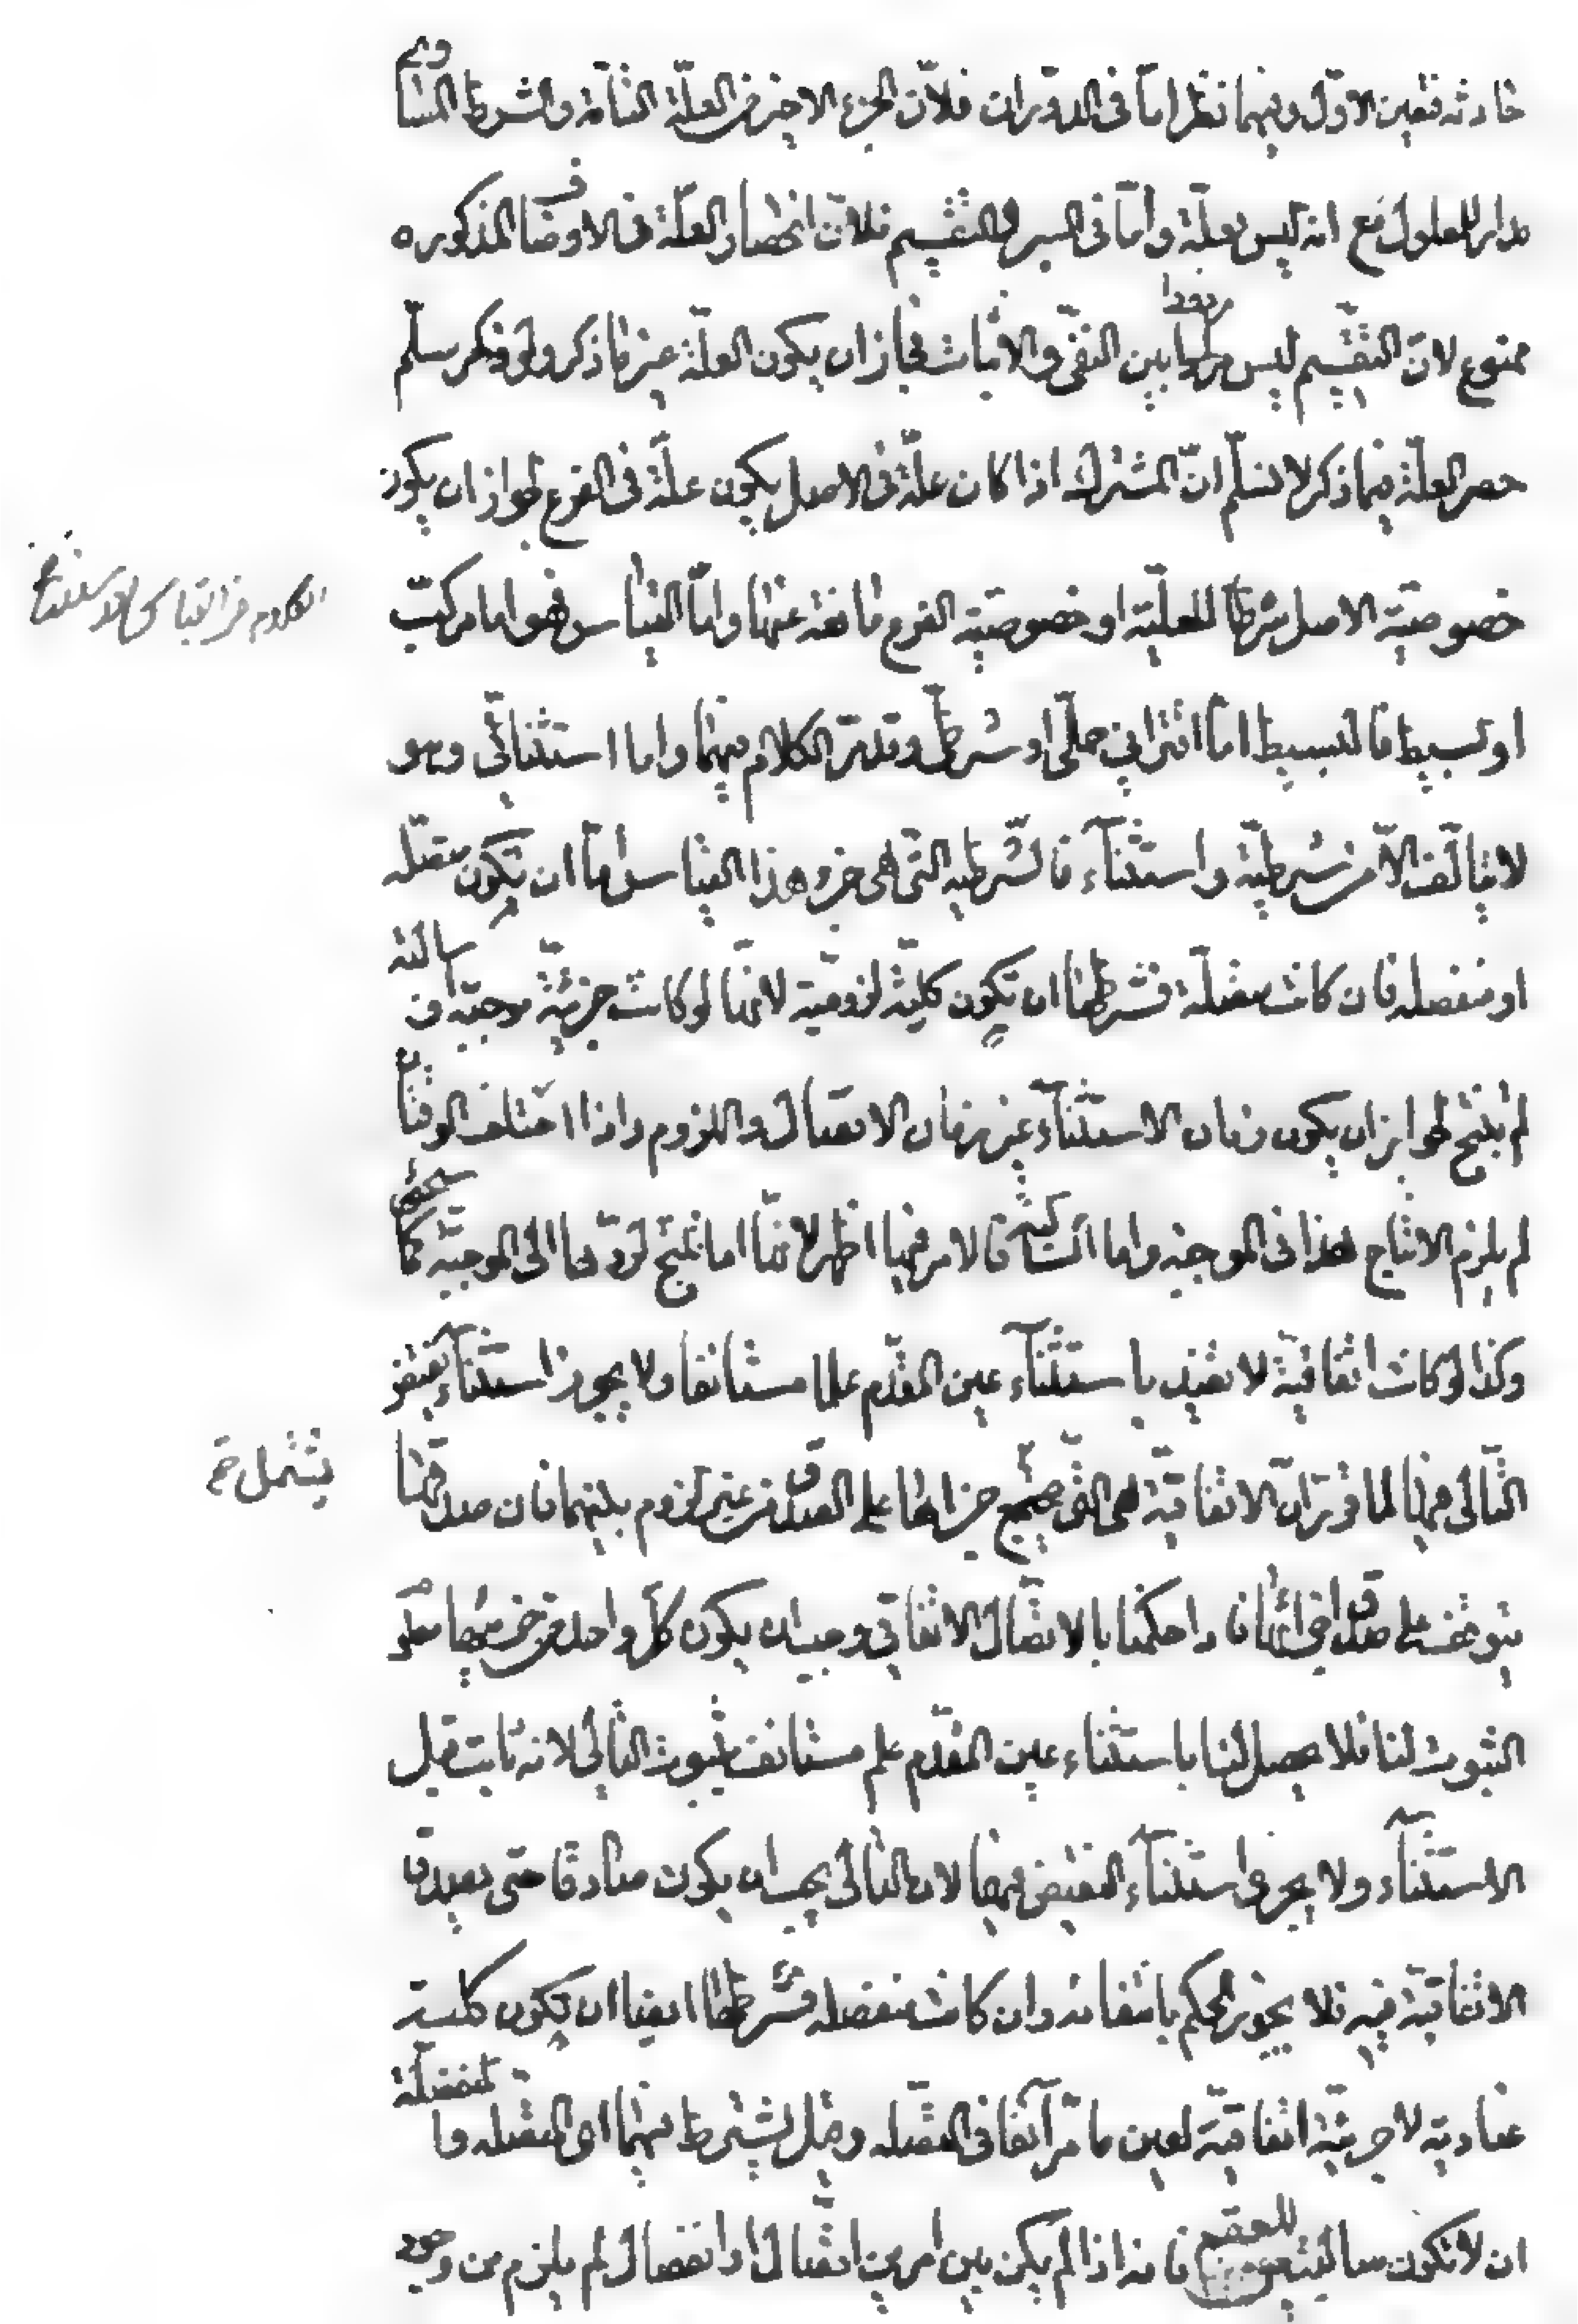 حادثه فتعين الاوّل وفيهما نظر امّا فى الدوران فلانّ الجزء الاخير من العلّة التامّة والشرط المساوى
مدار للمعلول مع انه ليس بعلّة وامّا فى السبر والتقسيم فلانّ انحصار العلّة فى الاوصاف المذكوره
ممنوع لانّ التقسيم ليس مرددا بين النفى والاثبات فجاز ان يكون العلّة غير ما ذكر ولو سلّم
حصر العلّة فيما ذكر لا نسلّم انّ المشترك اذا كان علّة فى الاصل يكون علّة فى الفرع لجواز ان يكون
خصوصيّة الاصل شرطا للعليّة او خصوصيّة الفرع مانعة عنها وامّا القياس فهو اما مركّب
الكلام فى القياس الاستثنائى
او بسيط فالبسيط امّا اقترانى حملّى او شرطىّ وقد مرّ الكلام فيهما واما استثنائى وهو
لا يتالّف الّا من شرطيّة واستثنآء فالشرطيه التى هى جزء هذا القياس امّا ان تكون متصله
او منفصله فان كانت متصّلة فشرطها ان تكون كليّة لزوميّة لانها لو كانت جزئيّة موجبة او سالبة
لم ينتج لجواز ان يكون زمان الاستثنآء غير زمان الاتصال واللزوم واذا اختلف الوقتان
لم يلزم الانتاج هذا فى الموجبة واما السّالبة فالامر فيها اظهر لانها اما تنتج لردّها الى الموجبة كما سيجئ
وكذا لو كانت اتفاقيّة لا تفيد باستثنآء عين المقدّم علما مستانفا ولا يجوز استثنآء نقيض
التّالى فيها لما مرّ انّ الاتفاقيّة هى التى يجتمع جزاها على الصدق من غير لزوم بينهما فان صدقها
يشتمل
يتوقف على صدق اجزائها فاذا حكمنا بالاتصّال الاتفاقى وجب ان يكون كلّ واحد من جزئيها معلوم
الثبوت لنا فلا يحصل لنا باستثناء عين المقدّم علم مستانف بثبوت التالى لانه ثابت قبل
الاستثنآء ولا يجرى استثنآء النقيض فيها لان التالى يجب ان يكون صادقا حتى تصدق
الاتفاقيّة فيه فلا يجوز الحكم بانتفائه وان كانت منفصله فشرطها ايضا ان تكون كليّة
عناديّة لا جزئيّة اتفاقيّة لعين ما مرّ آنفا فى المتّصله وقيل يشترط فيهما اى المتّصله والمنفصلة
ان لا تكون سالبة للعقم فانه اذا لم يكن بين امرين اتّصال او انفصال لم يلزم من وجود